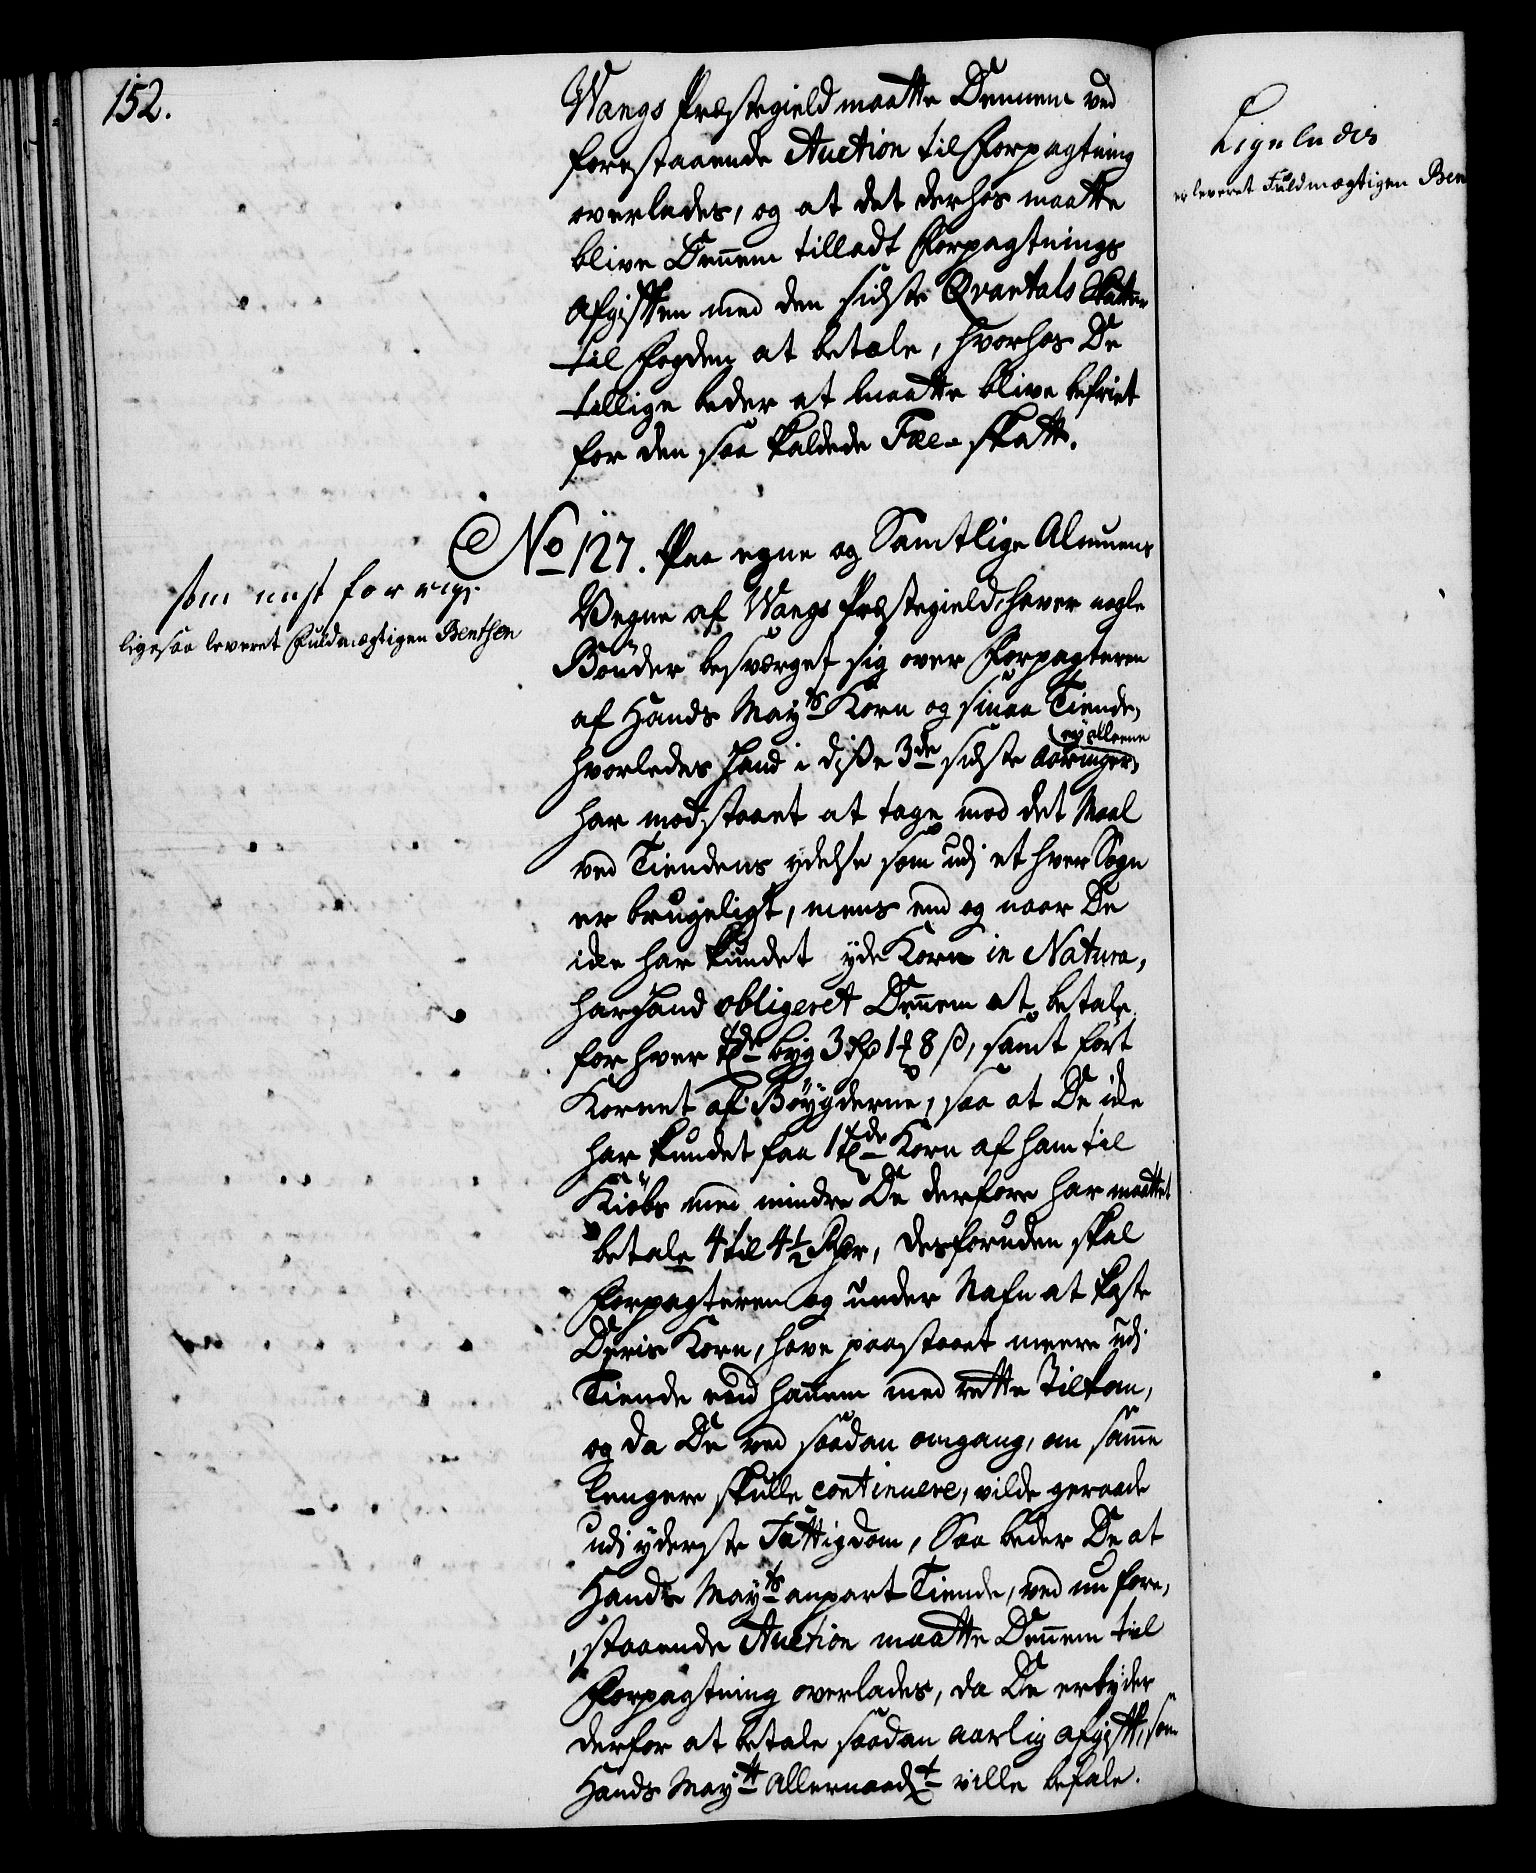 152.
Wangs Præstegield maatte Dennem ved
forestaaende Auction til Forpagtning
overlades, og at det derhos maatte
blive Dennem tilladt Forpagtnings
Afgiften med den sidste Qvartals Skatter
til Fogden at betale, hvorhos De
tillige beder at maatte blive befriet
for den saa kaldede Fæe-skatt.
No 127. Paa egne og Samtlige Almuens
Vegne af Wangs Præstegield, haver nogle
Bønder besværget sig over Forpagteren
af Hands Mayts Korn og smaa Tiende,
hvorledes Hand i disse 3de sidste Aaringer,
ey alleene
har modstaaet at tage mod det Maal
ved Tiendens ydelse som udj et hver Sogn
er brugeligt, mens end og naar De
icke har kundet yde Korn in Natura,
har Hand obligeret Dennem at betale
for hver tde byg 3 rdr 1 ß 8 ß, samt ført
Kornet af Bøygderne, saa at De icke
har kundet faa 1 tde Korn af ham til
Kiøbs med mindre De derfore har maattet
betale 4 til 4½ Rdr, desforuden skal
Forpagteren og under Nafn at kaste
Deris Korn, have paastaaet meere udj
Tiende end hannem med rette Tilkom,
og da De ved saadan omgang, om samme
længere skulle continuere, vilde geraade
udj yderste Fattigdom, Saa beder De at
Hands Mayts anpart Tiende, ved nu fore,
,staaende Auction maatte Dennem til
Forpagtning overlades, da De erbyder
derfor at betale saadan aarlig afgift, som
Hands Maytt Allernaadt ville befale.
som nest forrige.
ligesaa leveret Fuldmægtigen Benthen
Ligeledis
er leveret Fuldmægtigen Ben